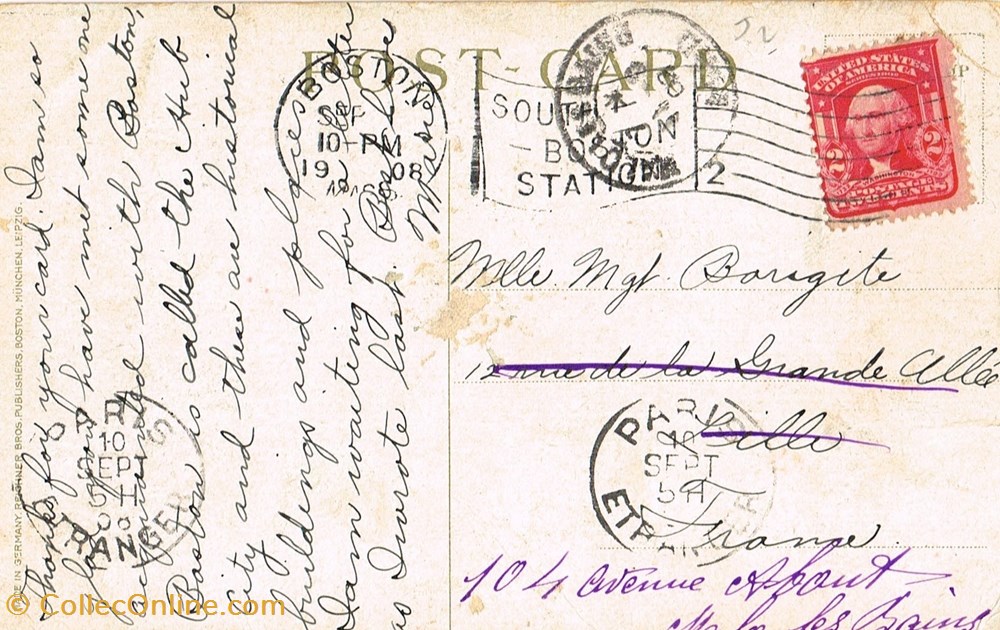 POST-CARD
BOSTON
SEP
10-PM
1908
MASS
SOUTH
BOSTON
STATION
2
UNITED STATES
OF AMERICA
2 2
WASHINGTON
POSTAGE
TWO CENTS
Thanks for your card. I am so
glad you have met some one
acquainted with Boston,
Boston is called the Hub
city and there are historical
buildings and places
I am waiting for a letter
as I wrote last. Best love
Massie
Mlle. Mgt. Boragite
12 rue de la Grande Allée
Lille
France
104 avenue
les Bains
PARIS
10
SEPT
5 H
08
ETRANGER
PARIS
10
SEPT
5 H
ETRANGER
MADE IN GERMANY, REICHNER BROS. PUBLISHERS, BOSTON, MÜNCHEN, LEIPZIG.
© CollecOnline.com